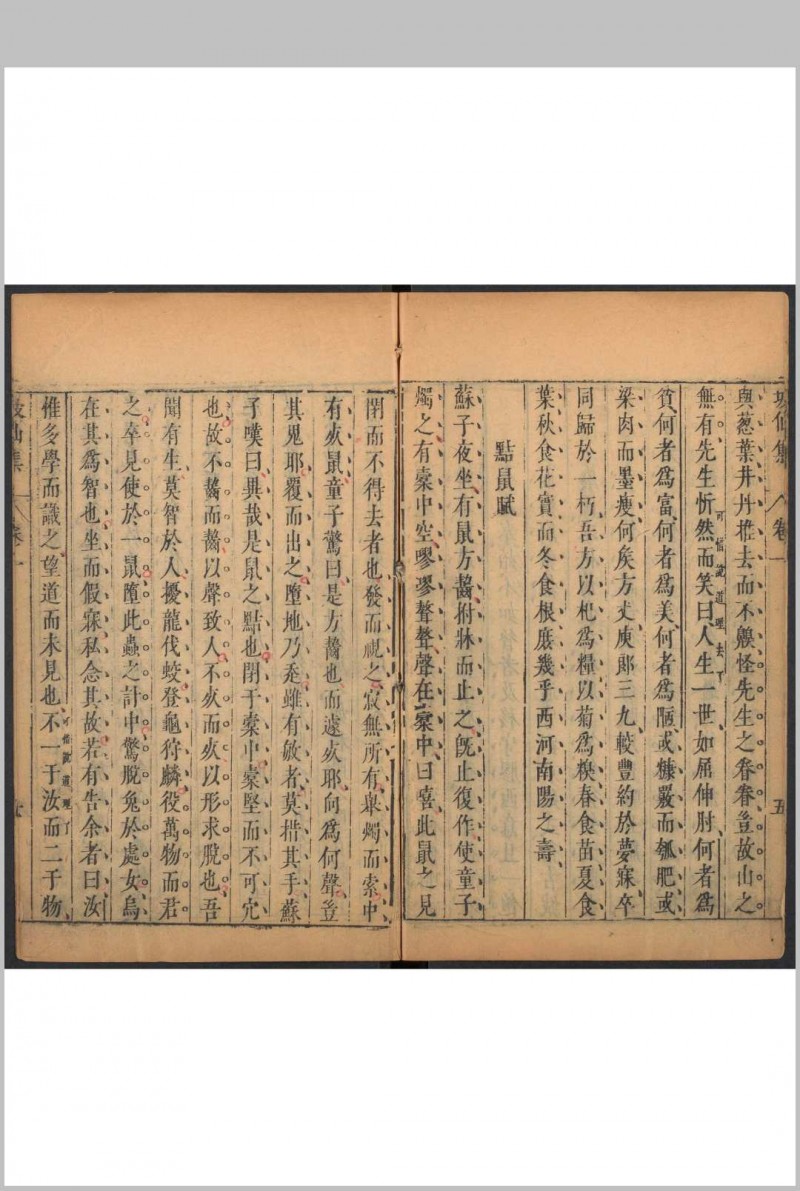 坡仙集 卷一 五
與蔥葉井丹推去而不嗅怪先生之眷眷豈故山之
無有先生忻然而笑曰人生一世如屈伸肘何者爲
可惜說道理去了
貧何者爲富何者爲美何者爲陋或糠覈而瓠肥或
梁肉而墨瘦何矦方丈庾郎三九較豐約於夢寐卒
同歸於一朽吾方以杞爲糧以菊爲糗春食苗夏食
葉秋食花實而冬食根庶幾乎西河南陽之壽
黠鼠賦
蘇子夜坐有鼠方齧拊牀而止之旣止復作使童子
燭之有橐中空嘐嘐聱聱聲在橐中曰嘻此鼠之見
閉而不得去者也發而視之寂無所有舉燭而索中
有死鼠童子驚曰是方齧也而遽死耶向爲何聲豈
其鬼耶覆而出之墮地乃走雖有敏者莫措其手蘇
子嘆曰異哉是鼠之黠也閉于橐中橐堅而不可穴
也故不齧而齧以聲致人不死而死以形求脫也吾
聞有生莫智於人擾龍伐蛟登龜狩麟役萬物而君
之卒見使於一鼠墮此蟲之計中驚脫兔於處女烏
在其爲智也坐而假寐私念其故若有告余者曰汝
惟多學而識之望道而未見也不一于汝而二于物
可惜說道理了
坡仙集 卷一